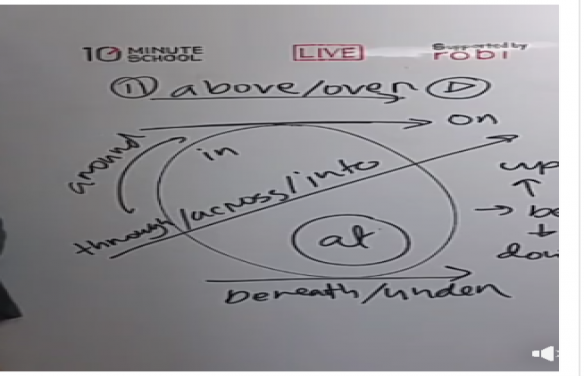 10 MINUTE SCHOOL
LIVE
Supported by
robi
11 above/over
on
around
in
through/across/into
up
at
be
dow
beneath/under